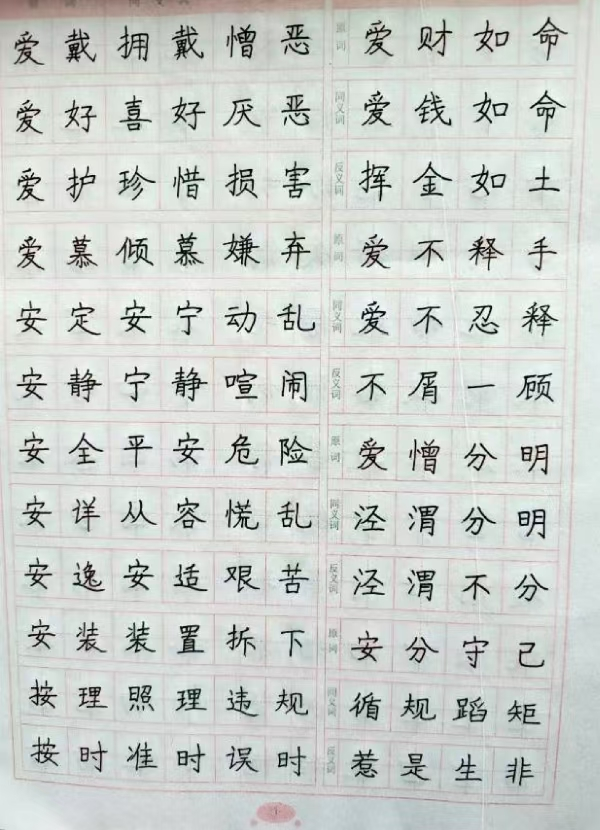 爱戴拥戴憎恶 原词 爱财如命
爱好喜好厌恶 同义词 爱钱如命
爱护珍惜损害 反义词 挥金如土
爱慕倾慕嫌弃 原词 爱不释手
安定安宁动乱 同义词 爱不忍释
安静宁静喧闹 反义词 不屑一顾
安全平安危险 原词 爱憎分明
安详从容慌乱 同义词 泾渭分明
安逸安适艰苦 反义词 泾渭不分
安装装置拆下 原词 安分守己
按理照理违规 同义词 循规蹈矩
按时准时误时 反义词 惹是生非